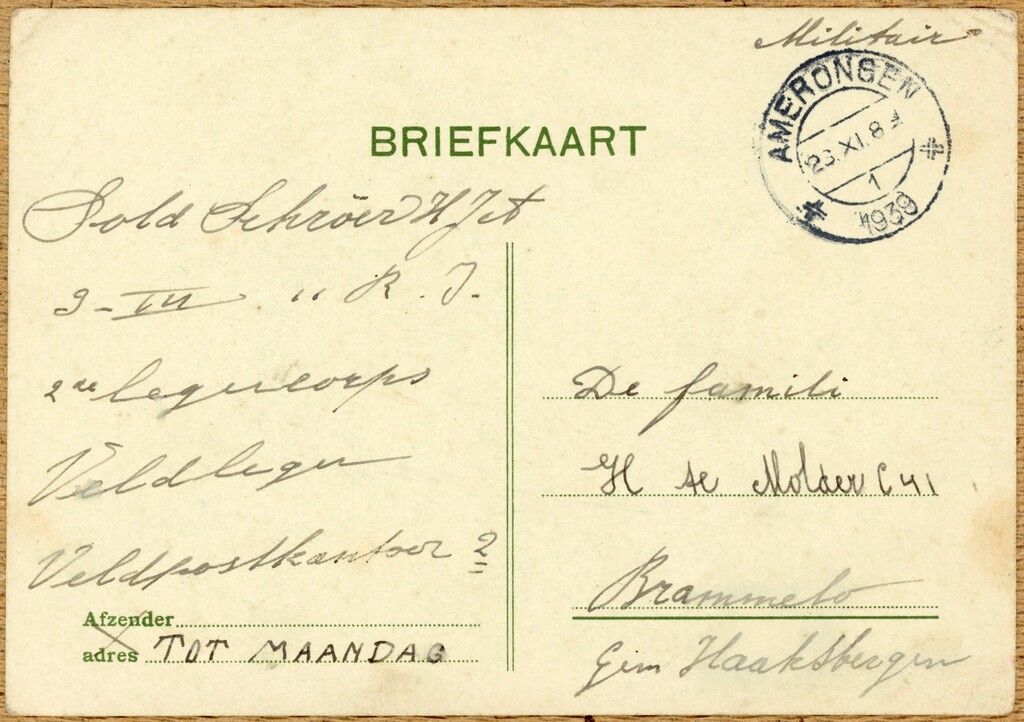 Militair
AMERONGEN
23.XI.8
1
1939
BRIEFKAART
Sold Schröer H J A
3-III 11 R. I.
2de legercorps
Veldleger
Veldpostkantoor 2
Afzender
adres TOT MAANDAG
De famili
H te Molder C 41
Brammelo
Gem Haaksbergen